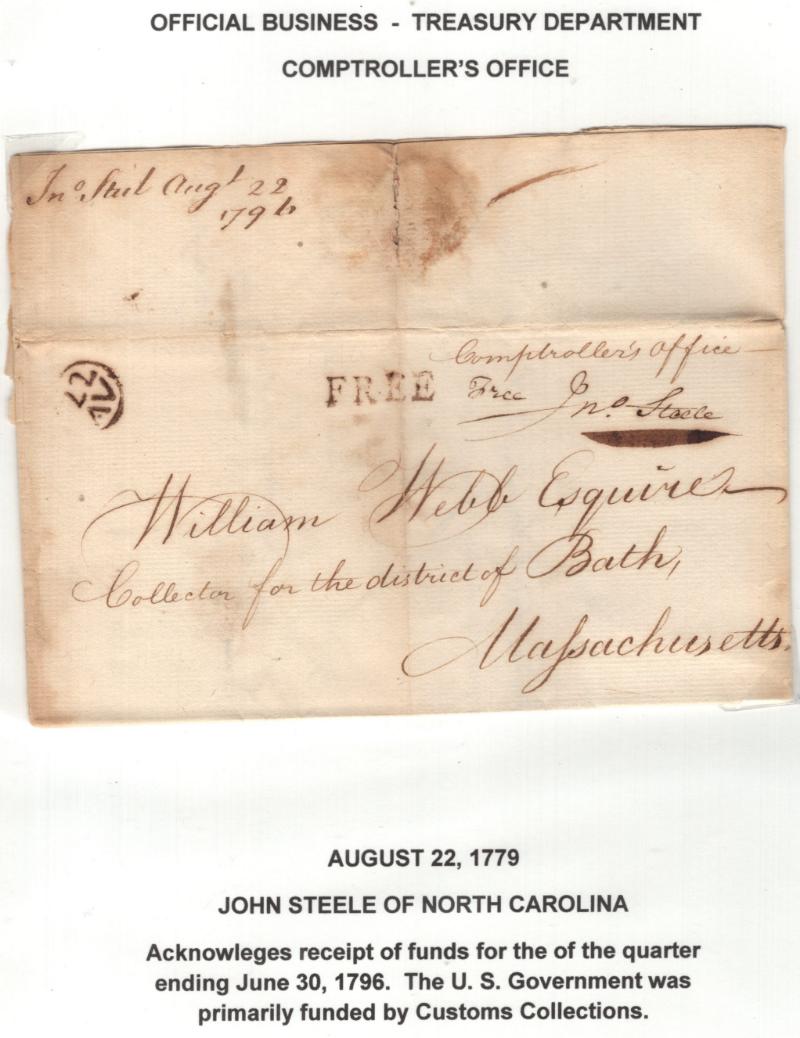 OFFICIAL BUSINESS - TREASURY DEPARTMENT
COMPTROLLER'S OFFICE
Jno. Steel Augt 22
1796
Comptroller's Office
22
AV
FREE
Free Jno. Steele
William Webb Esquire
Collector for the district of Bath,
Maſsachusetts.
AUGUST 22, 1779
JOHN STEELE OF NORTH CAROLINA
Acknowleges receipt of funds for the of the quarter
ending June 30, 1796. The U. S. Government was
primarily funded by Customs Collections.